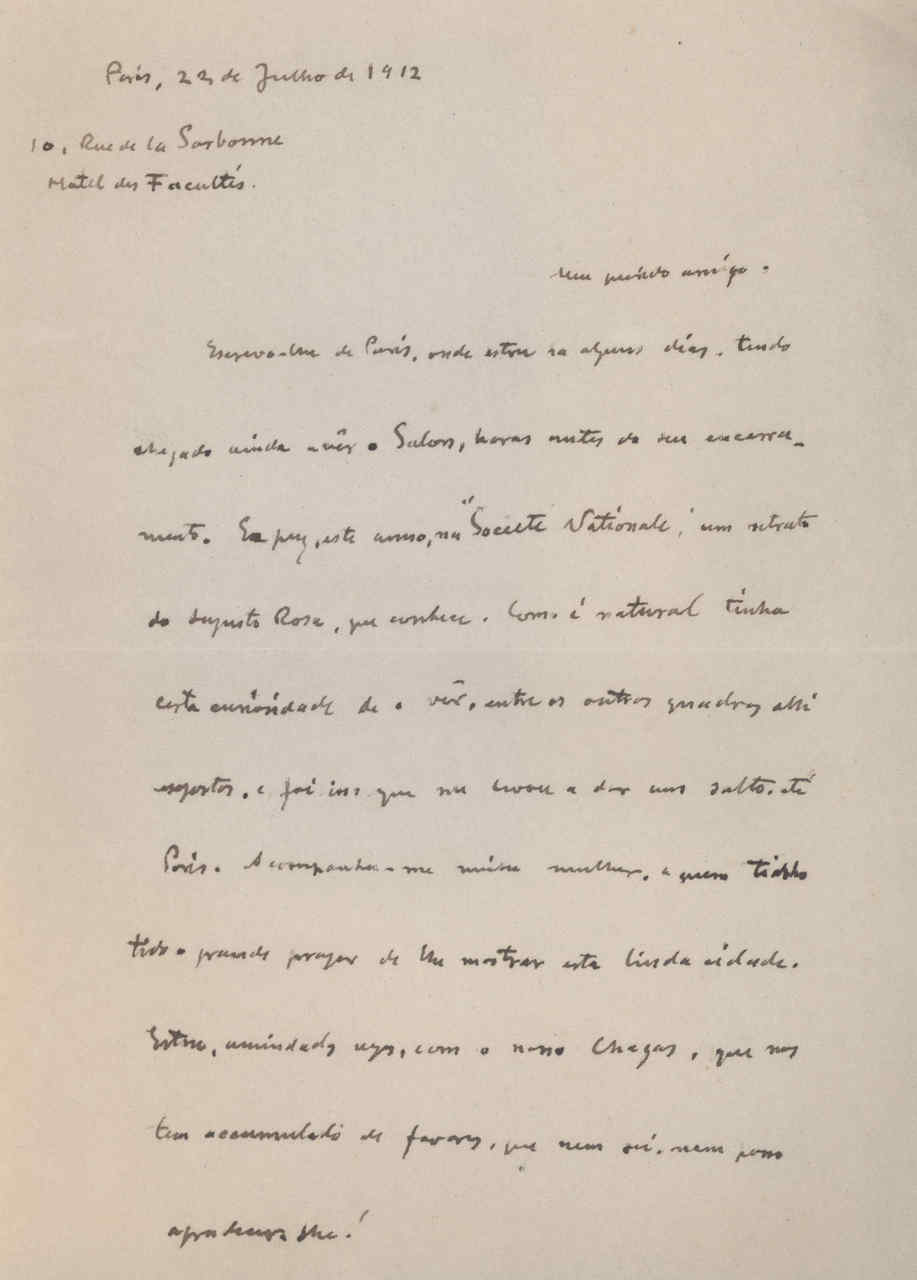 Paris, 22 de Julho de 1912
10, Rue de la Sorbonne
Hotel des Facultés.
Meu querido amigo.
Escrevo-lhe de Paris, onde estou ha alguns dias, tendo
chegado ainda a vêr o Salon, horas antes do seu encerra-
mento. Expuz, este anno, na "Societé Nationale", um retrato
do Augusto Rosa, que conhece. Como é natural tinha
certa curiosidade de o vêr, entre os outros quadros alli
expostos, e foi isso que me levou a dar um salto até
Paris. Acompanha-me minha mulher, a quem tenho
tido o grande prazer de lhe mostrar esta linda cidade.
Estou, amiudadas vezes, com o nosso Chagas, que nos
tem accumulado de favores, que nem sei, nem posso
agradecer-lhe!